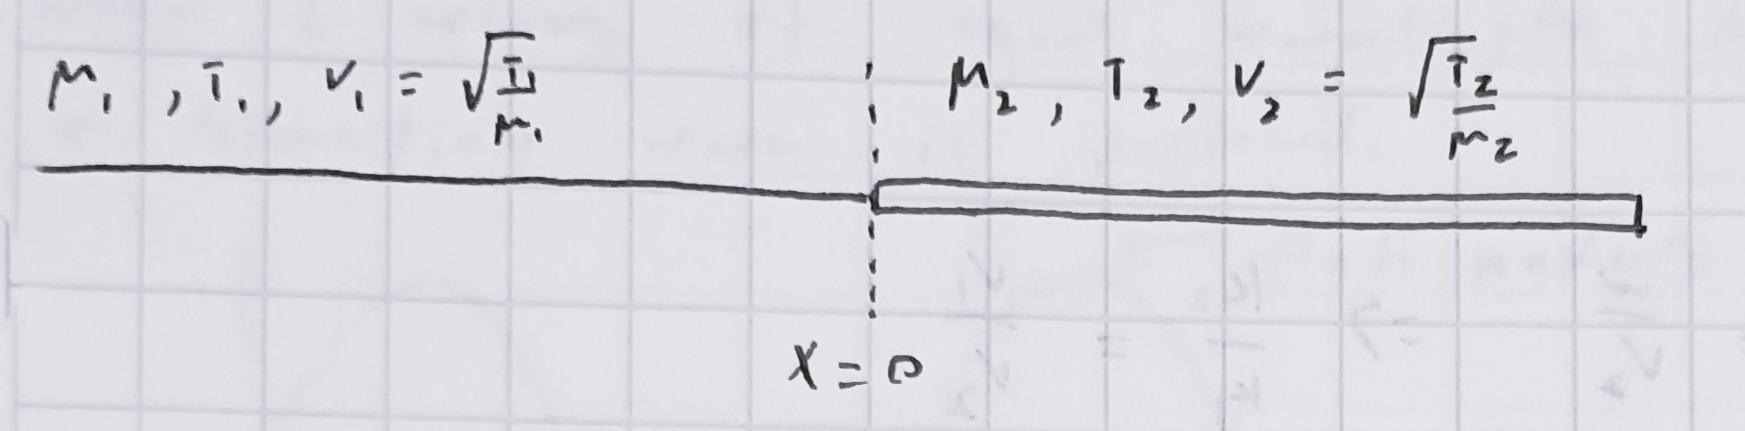 μ₁ , T₁, V₁ = √(T₁/μ₁)
μ₂, T₂, V₂ = √(T₂/μ₂)
X = 0